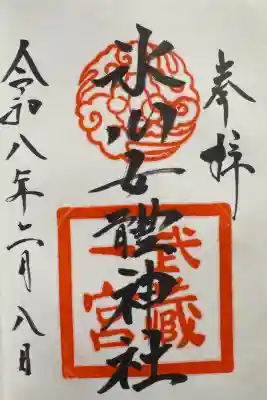 奉拝
氷川女體神社
武蔵
一宮
令和八年二月八日